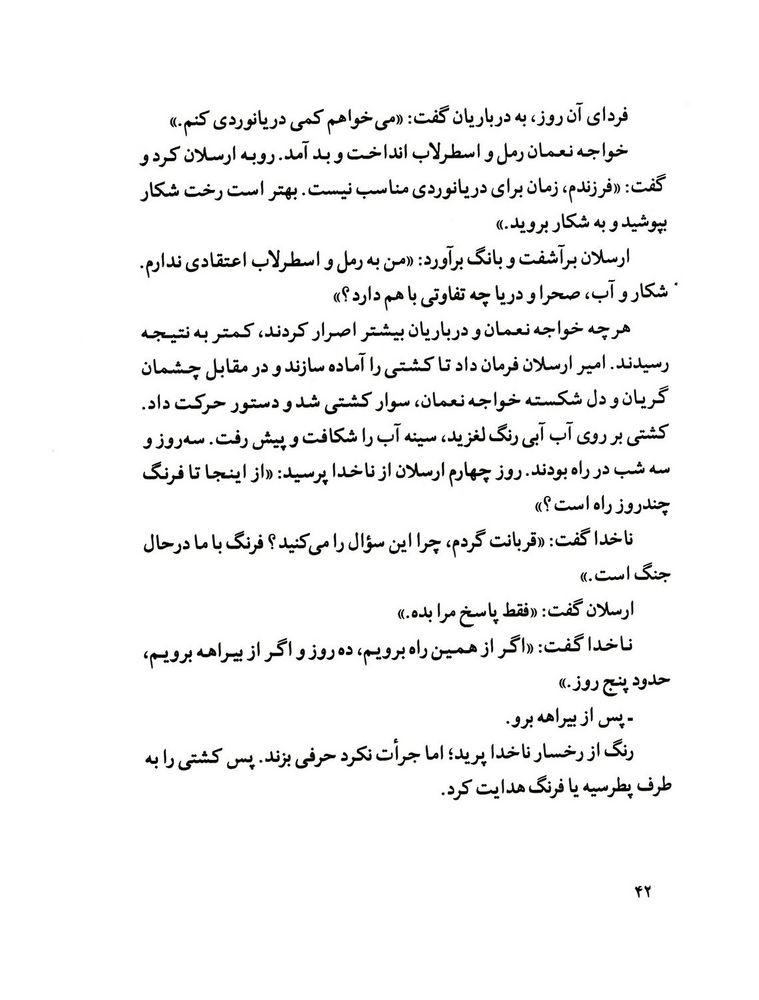 فردای آن روز، به درباریان گفت: «می‌خواهم کمی دریانوردی کنم.»
خواجه نعمان رمل و اسطرلاب انداخت و بد آمد. رو به ارسلان کرد و
گفت: «فرزندم، زمان برای دریانوردی مناسب نیست. بهتر است رخت شکار
بپوشید و به شکار بروید.»
ارسلان برآشفت و بانگ برآورد: «من به رمل و اسطرلاب اعتقادی ندارم.
شکار و آب، صحرا و دریا چه تفاوتی با هم دارد؟»
هر چه خواجه نعمان و درباریان بیشتر اصرار کردند، کمتر به نتیجه
رسیدند. امیر ارسلان فرمان داد تا کشتی را آماده سازند و در مقابل چشمان
گریان و دل شکسته خواجه نعمان، سوار کشتی شد و دستور حرکت داد.
کشتی بر روی آب آبی رنگ لغزید، سینه آب را شکافت و پیش رفت. سه‌روز و
سه شب در راه بودند. روز چهارم ارسلان از ناخدا پرسید: «از اینجا تا فرنگ
چندروز راه است؟»
ناخدا گفت: «قربانت گردم، چرا این سؤال را می‌کنید؟ فرنگ با ما درحال
جنگ است.»
ارسلان گفت: «فقط پاسخ مرا بده.»
ناخدا گفت: «اگر از همین راه برویم، ده روز و اگر از بیراهه برویم،
حدود پنج روز.»
ـ پس از بیراهه برو.
رنگ از رخسار ناخدا پرید؛ اما جرأت نکرد حرفی بزند. پس کشتی را به
طرف پطرسیه یا فرنگ هدایت کرد.
۴۲